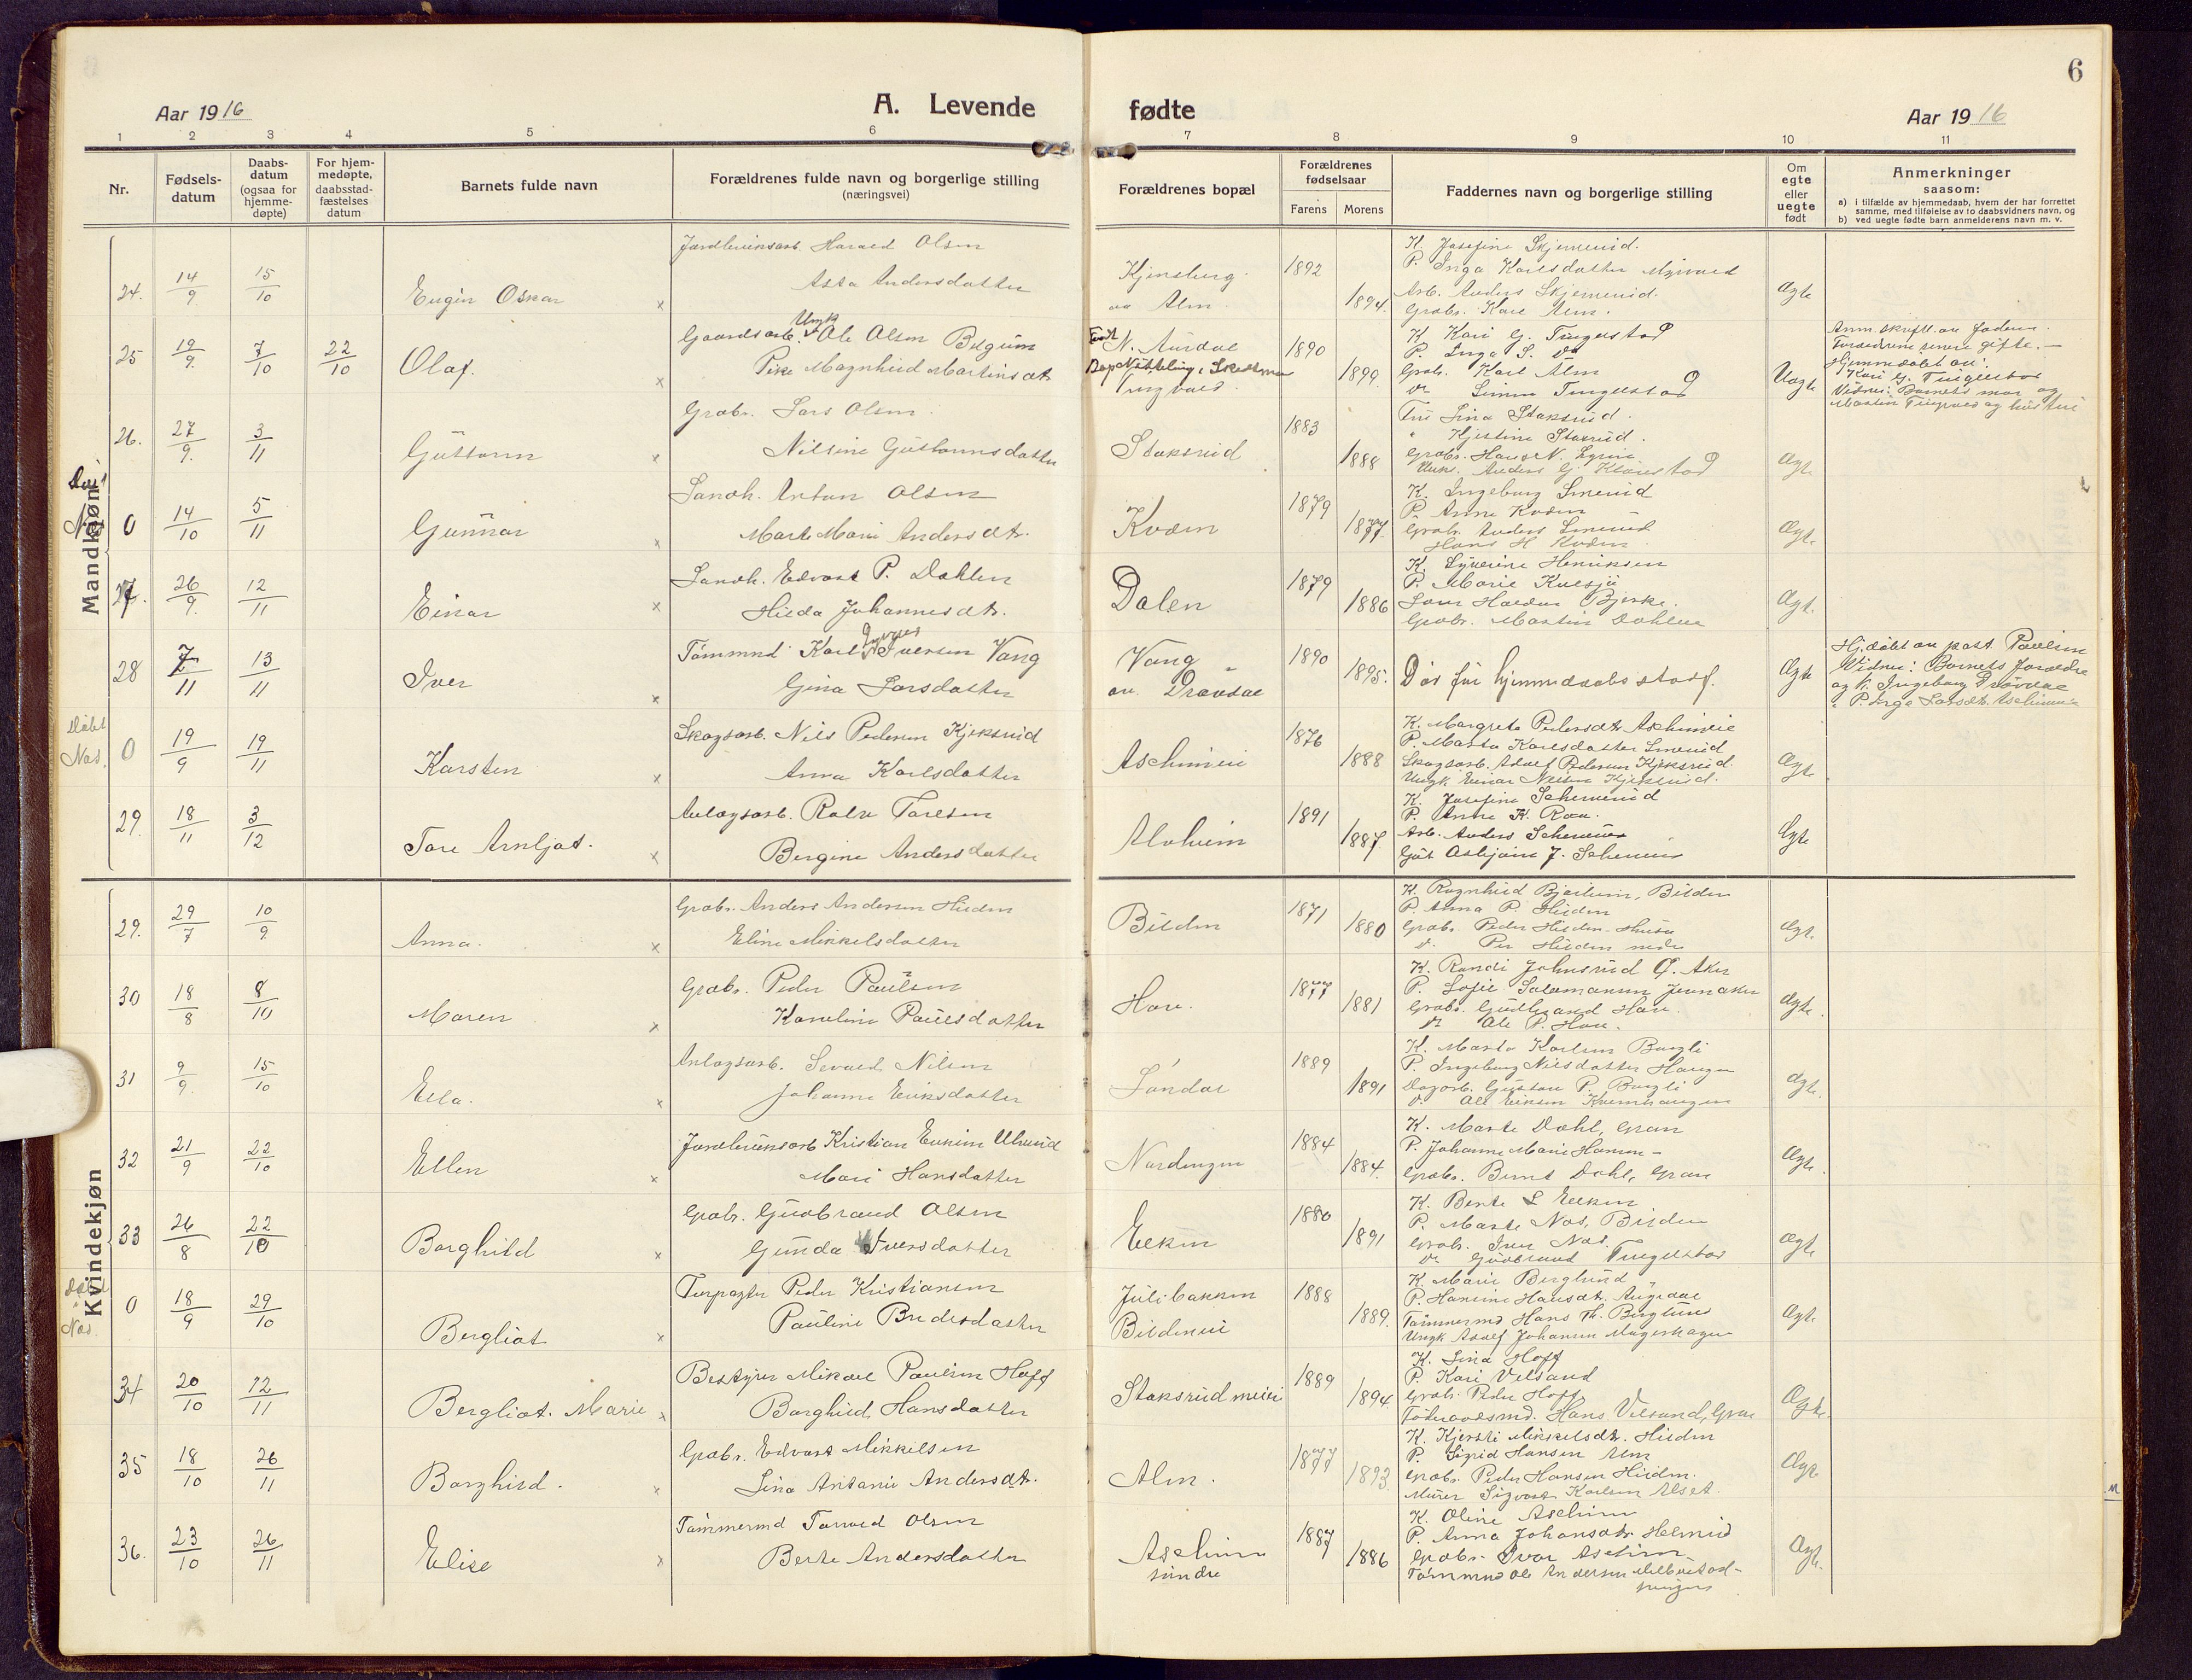 6
Aar 1916
A. Levende fødte
Aar 1916
1 2 3 4 5 6 7 8 9 10 11
Nr.
Fødsels-
datum
Daabs-
datum
(ogsaa for
hjemme-
døpte)
For hjem-
medøpte,
daabsstad-
fæstelses
datum
Barnets fulde navn
Forældrenes fulde navn og borgerlige stilling
(næringsvei)
Forældrenes bopæl
Forældrenes
fødselsaar
Farens Morens
Faddernes navn og borgerlige stilling
Om
egte
eller
uegte
født
Anmerkninger
saasom:
a) i tilfælde av hjemmedaab, hvem der har forrettet
samme, med tilføielse av to daabsvidners navn, og
b) ved uegte fødte barn anmelderens navn m. v.
Mandkjøn
24. 14/9 15/10 Eugen Oskar
Harald Olsen
Asta Andersdatter
Alm
1892 1894
K. Josefine
P. Inga Karlsdatter
Arb. Anders
Grabr. Karl Alm.
Ægte
25 19/9 7/10 22/10 Olaf.
Gaardsarb. Ungk Ole Olsen
Pike Magnhild Martinsdtr
N. Aurdal
1890 1899
K. Kari G. Tingelstad
P. Inga S. do
Grabr. Karl Alm
do Simen Tingelstad
Uægte
Anm. skriftl. av faderen.
Forældrene senere gifte.
Hjemmedøbt av:
Kari G. Tingelstad
Vidner: Barnets mor og
26. 27/9 3/11 Guttorm
Grabr. Lars Olsen
Nilsine Guttormsdatter
Staksrud
1883 1888
Fru Lina Staksrud.
" Kjestine Staksrud.
Grabr. Hans N.
Ungk. Anders G.
Ægte
Nas 0 14/10 5/11 Gunnar
Landh. Anton Olsen
Marte Marie Andersdtr.
Kvæn
1879 1877
K. Ingeborg Smerud
P. Anne Kvæn
Grabr. Anders Smerud
Hans H. Kvæn
Ægte
27. 26/9 12/11 Einar
Landh. Edvart P. Dahlen
Hilda Johannesdtr.
Dalen
1879 1886
K. Syverine Henriksen
P. Marie
Bjerke.
Grabr. Martin Dahlen
Ægt.
28 7/11 13/11 Iver
Tømmmd Karl Iversen Vang
Gina Larsdatter
Vang
1890 1895.
Død før hjemmedaabs stadf.
Ægte
Hj. døbt av past. Paulsen
Vidner: Barnets forældre
og K. Ingeborg
P. Inga Larsdtr.
Døbt
Nas. 0 19/9 19/11 Karsten
Skogsarb. Nils Pedersen Kjeksrud
Anna Karlsdatter
1876 1888
K. Margrete Pedersdtr.
P. Marta Karlsdatter Smerud
Skogsarb. Adolf Pedersen Kjeksrud.
Ungk. Einar Nilsen Kjeksrud.
Ægte
29. 18/11 3/12 Tore Arnljot.
Anlægsarb. Rolv Toresen
Bergine Andersdatter
1891 1887
K. Josefine
P. Anne K.
Arb. Anders
Ægte
Kvindekjøn
29. 29/7 10/9 Anna.
Grabr. Anders Andersen Hilden
Eline Mikkelsdatter
Bilden
1871 1880
K. Ragnhild Bjertnes, Bilden
P. Anna P. Hilden
Grabr. Peder Hilden
do Per Hilden nedre
Ægt.
30 18/8 8/10 Maren
Grabr. Peder Paulsen
Karoline Paulsdatter
Hov.
1877 1881
K. Randi Johnsrud Ø. Aker
P. Sofie Salomonsen Jevnaker
Grabr. Gudbrand Hov.
do Ole P. Hov.
Ægte.
31 9/9 15/10 Ella.
Anlægsarb. Sevald Nilsen
Johanne Eriksdatter
1889 1891
K. Marta Karlsen
P. Ingeborg Nilsdatter Haugen
Dagarb. Gustav P.
do Ole Eriksen
Ægt.
32 21/9 22/10 Ellen
Kristian
Mari Hansdatter
Nordengen
1884 1884.
K. Marte Dahl, Gran
P. Johanne Marie Hansen
Grabr. Bernt Dahl, Gran
Ægte.
33 26/8 22/10 Borghild
Grabr. Gudbrand Olsen
Gunda Iversdatter
1880 1891
K. Berte L.
P. Marte Nas, Bilden
Grabr. Iver Nas.
do Gudbrand Tingelstad
Ægte
Døbt
i
Nas. 0 18/9 29/10 Bergliot
Forpagter Peder Kristiansen
Pauline Pedersdatter
Julibakken
Bildeneie
1888 1889.
K. Marie Berglund
P. Hansine Hansdtr.
Tømmermd Hans Th. Berglund
Ungk. Adolf Johansen
Ægt.
34 20/10 12/11 Bergliot Marie
Bestyrer Mikael Paulsen Hoff
Borghild Hansdatter
Staksrud meieri
1889 1894.
K. Lina Hoff
P. Kari Velsand
Grabr. Peder Hoff
Hans Velsand, Gran
Ægte.
35 18/10 26/11 Borghild.
Grabr. Edvart Mikkelsen
Lina Antonie Andersdtr.
Alm.
1877 1893.
K. Kjersti Mikkelsdtr. Hilden
P. Sigrid Hansen Alm
Grabr. Peder Hansen Hilden.
Murer Sigvart Karlsen Alset.
Ægt.
36. 23/10 26/11 Elise
Tømmermd Torvald Olsen
Berte Andersdatter
Aschim
søndre
1887 1886
K. Oline Aschim
P. Anna Johansdtr. Helmeid
Grabr. Ivar Aschim
Tømmmd Ole Andersen
Ægt.